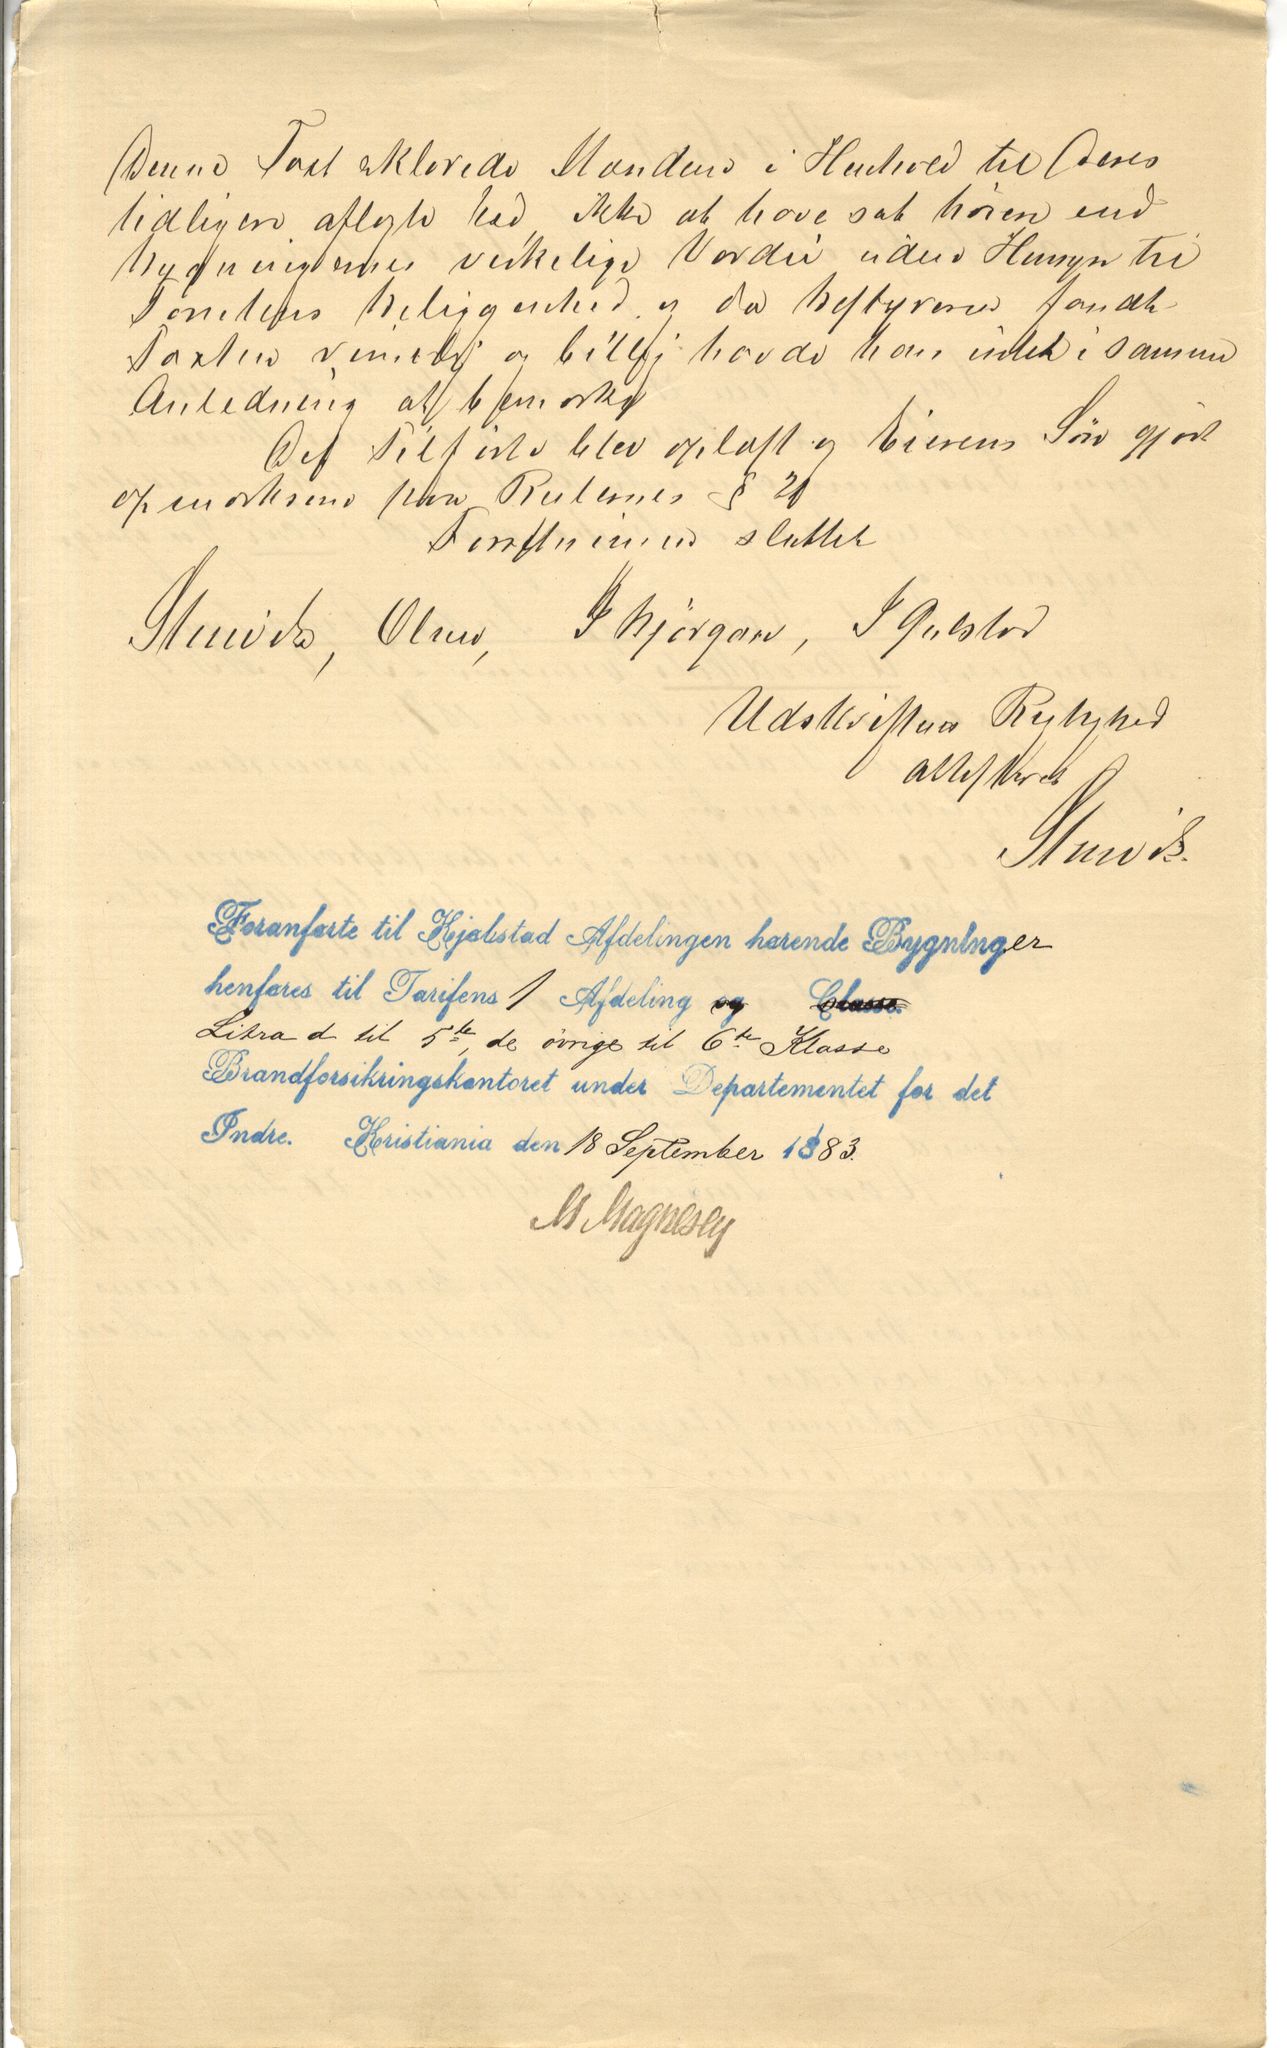 Denne Taxt erklærede Mændene i Henhold til Deres
tidligere aflagte Ed ikke at have sat høiere end
Bygningernes virkelige Værdi uden Hensyn til
Tomtens Beliggenhed og da Bestyreren fandt
Taxten rimelig og billig havde han intet i samme
Anledning at bemærke
Det Tilførte blev oplæst og Eierens Søn gjort
opmærksom paa Reglernes §
Forretningen sluttet
Olsen,
Udskriftens Rigtighed
attesteret
Foranførte til Kjøbstad Afdelingen hørende Bygninger
henføres til Tarifens 1 Afdeling og Classe.
Litra d til 5te, de øvrige til 6te Klasse
Brandforsikringskontoret under Departementet for det
Indre. Kristiania den 18 September 1883.